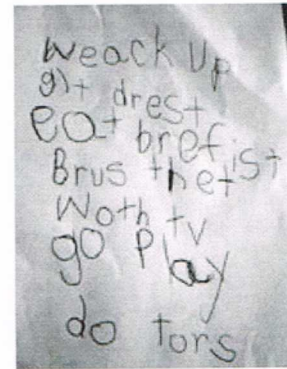 weack up
git drest
eat brefist
Brus thet
Woth tv
go play
do tors